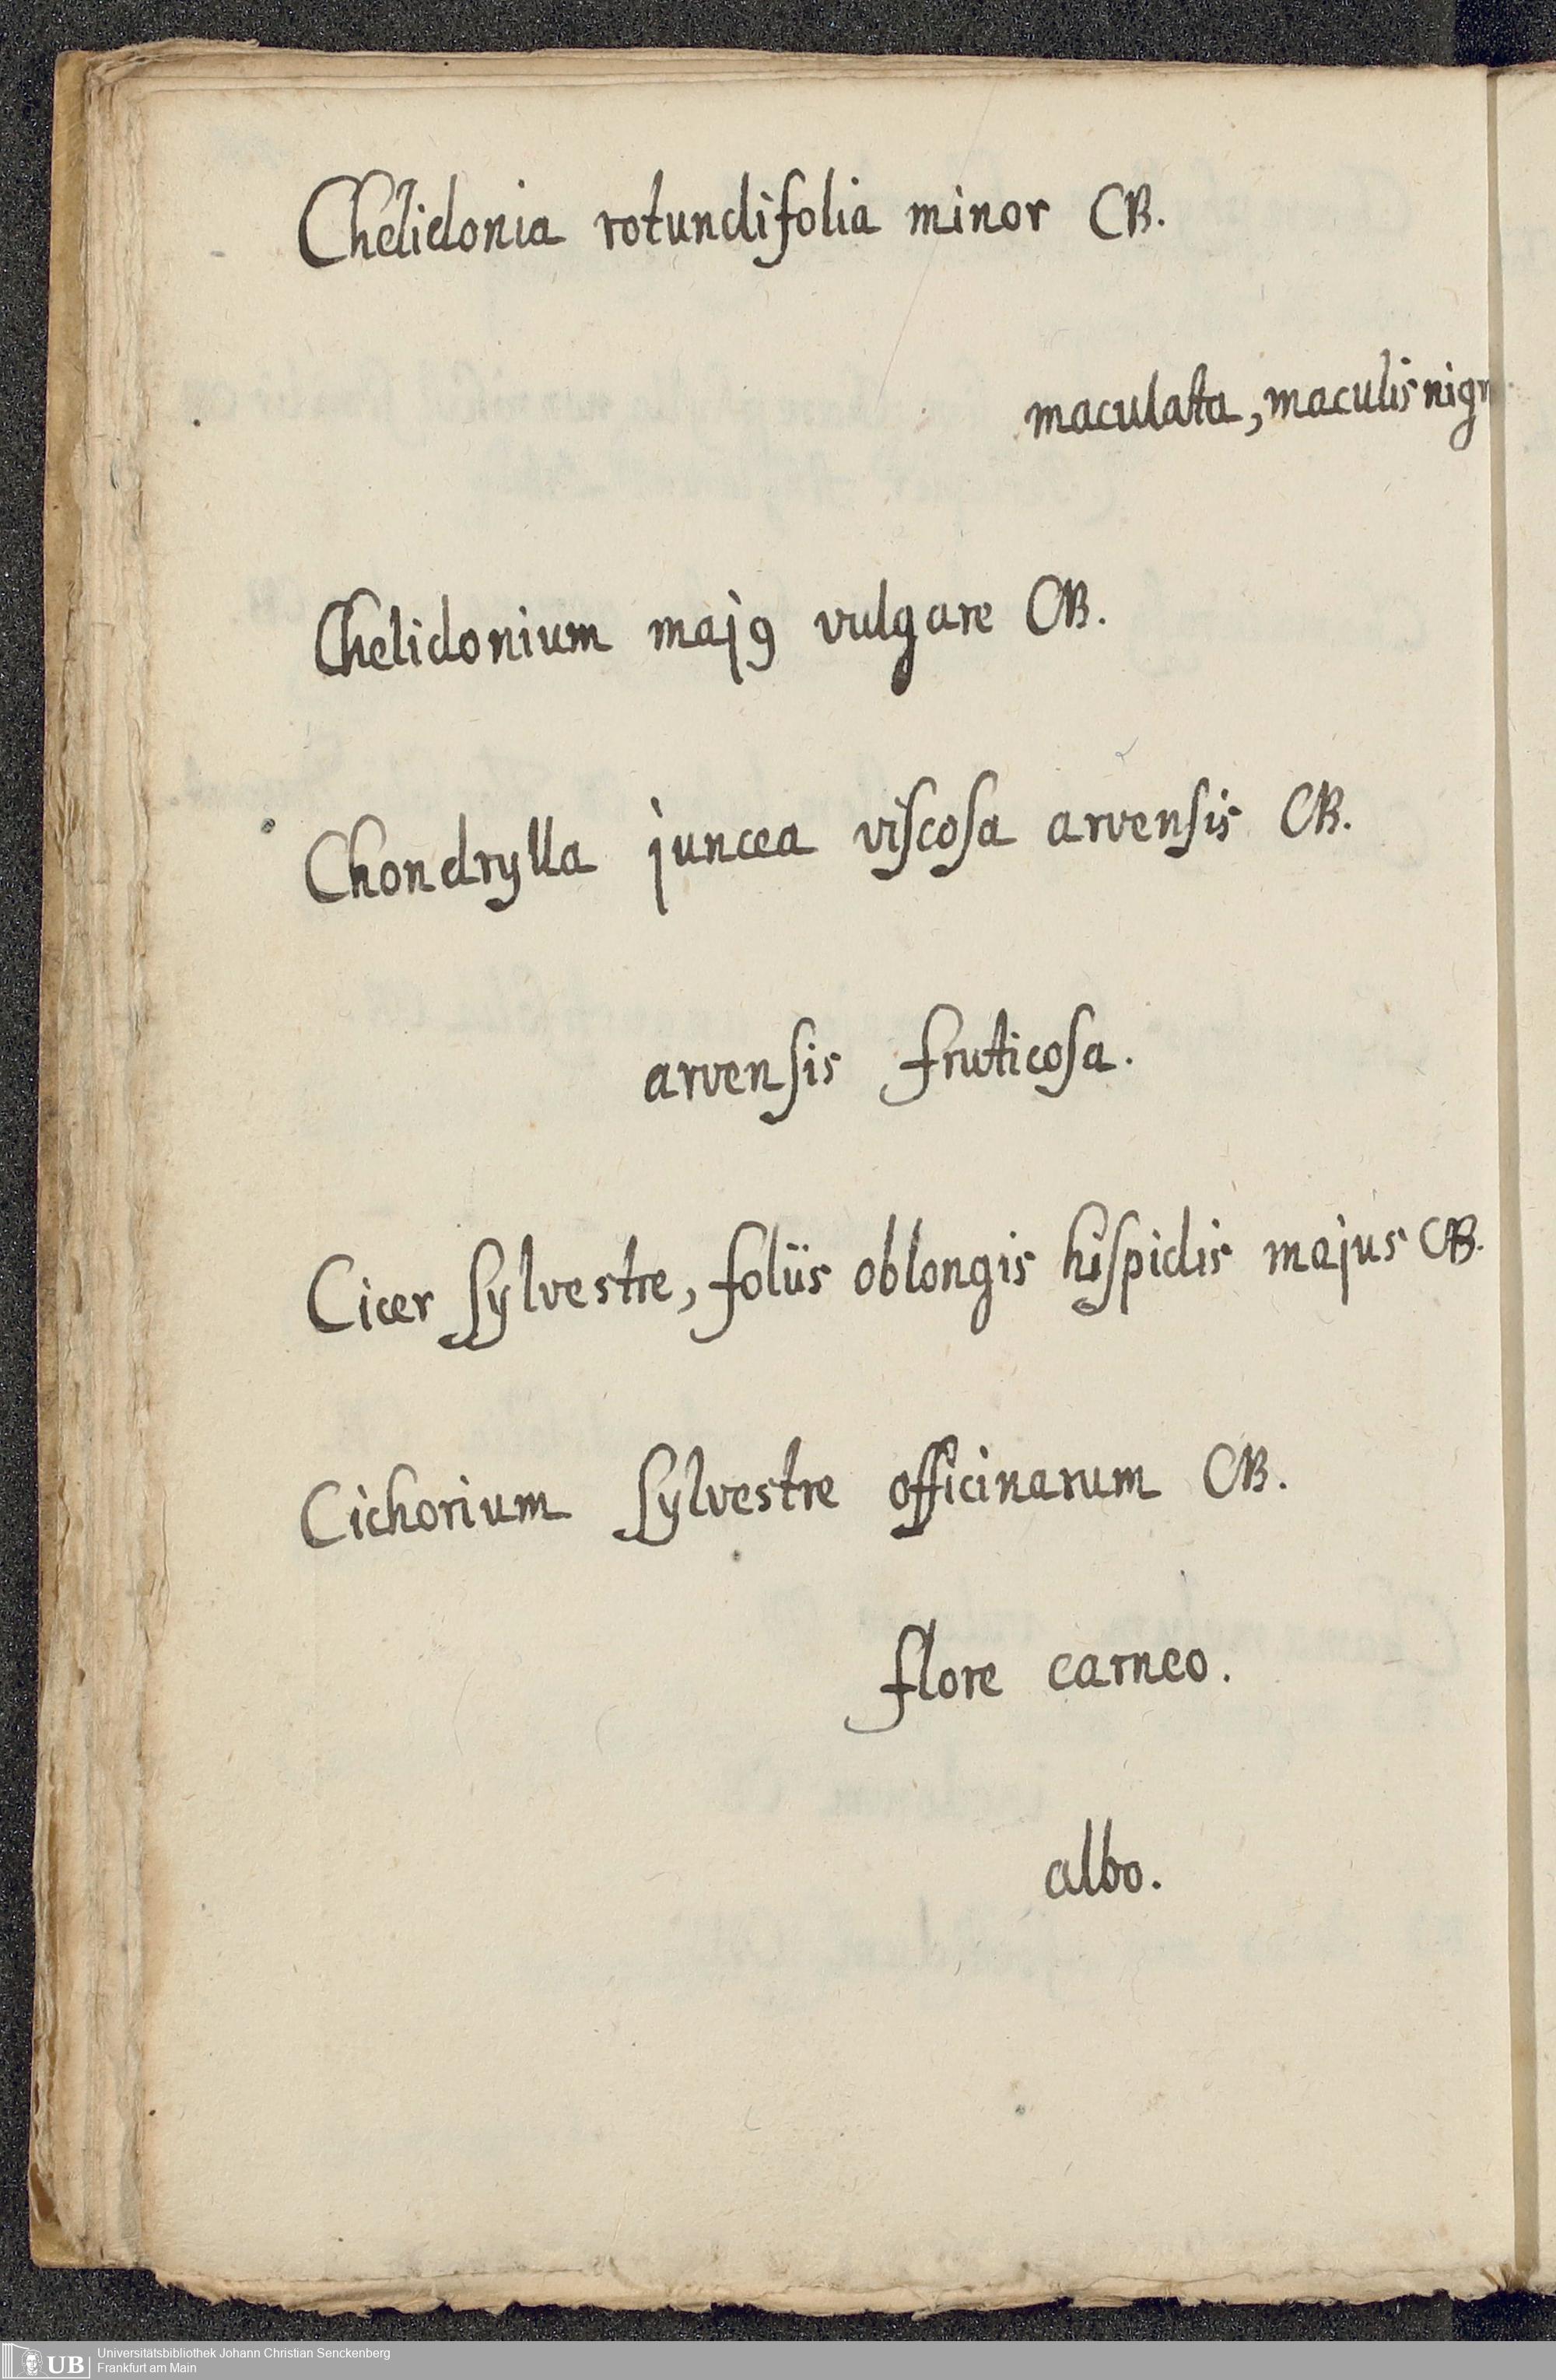 Chelidonia rotundifolia minor CB.
maculata, maculis nigr
Chelidonium majꝰ vulgare CB.
Chondrylla juncea viſcoſa arvenſis CB.
arvenſis fruticoſa.
Cicer ſylvestre, foliis oblongis hiſpidis majus CB.
Cichorium ſylvestre officinarum CB.
flore carneo.
albo.
UB
Universitätsbibliothek Johann Christian Senckenberg
Frankfurt am Main